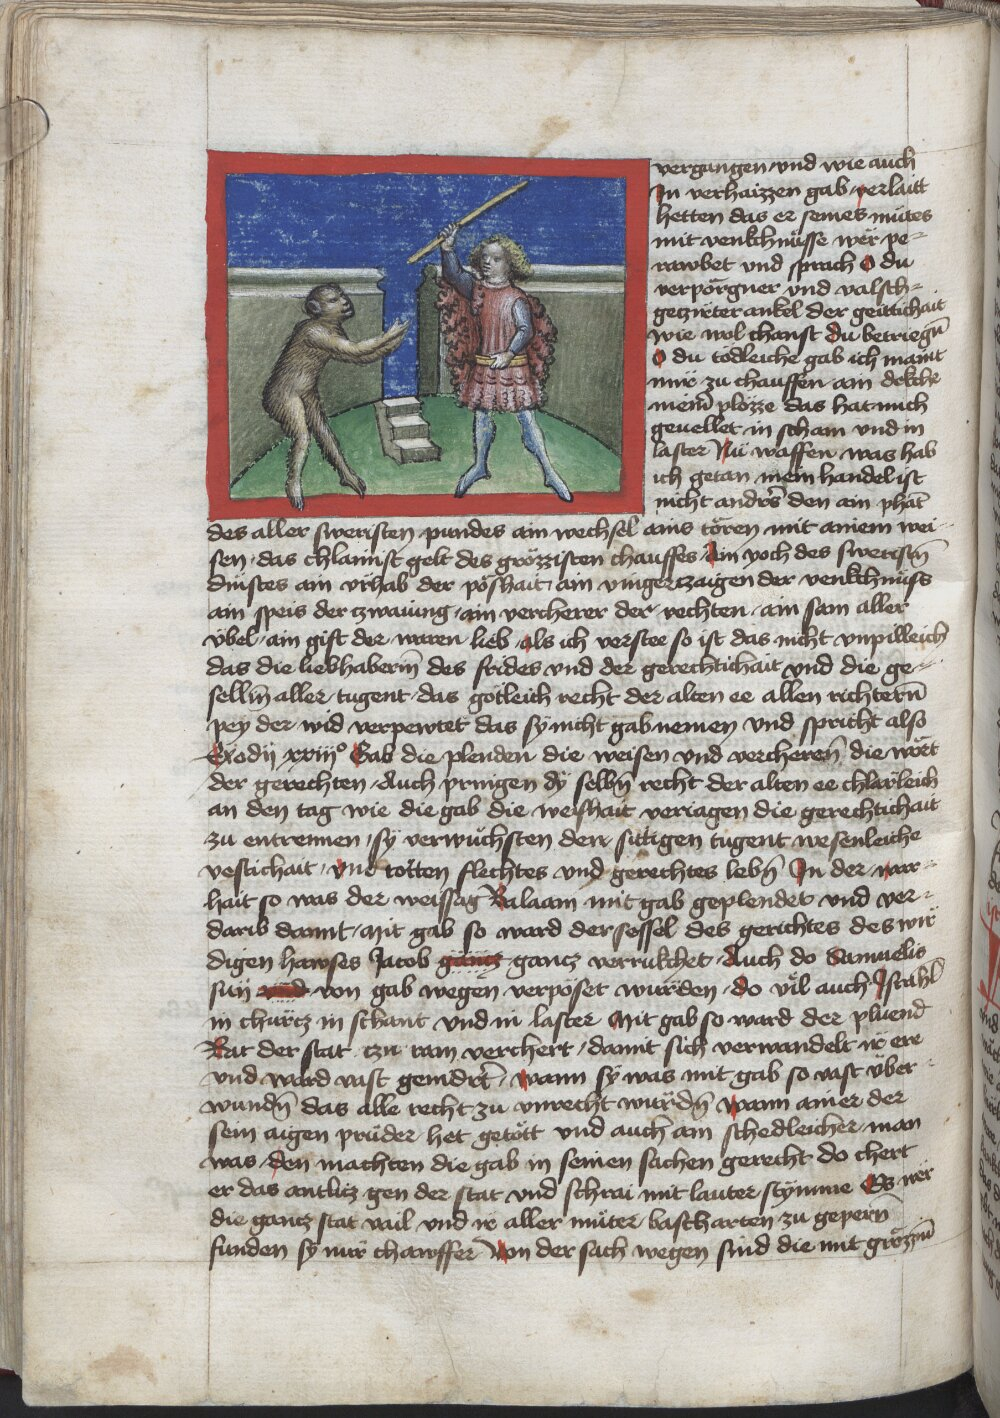 vergangen und wie auch
In verhaizzen gab verlaitt
hetten das er seines mütes
mit venkchnüsse wër pe-
rawbet und sprach O du
verpörgner und valsch-
getzirter ankel der geitichait
wie wol chanst du betriegn̄
O du tödleiche gab ich maint
mir zu chauffen ain dekche
meiner plözze das hat mich
geuellet in scham und in
laster Nu waffen was hab
ich getan mein handel ist
nicht andrs den ain phat
des aller sweristen pundes ain wechsel ains tören mit ainem wei-
sen das chlainist gelt des grözzisten chauffes Ain yoch des sweristn̄
dinstes ain vrhab der pöshait ain vinger tzaigen der venkchnüss
ain speis der czwaiung ain vercherer der rechten ain sam aller
vbel ain gift der waren lieb Als ich verstee so ist das nicht vnpilleich
das die liebhaberin̄ des frides und der gerechtichait vnd die ge-
sellin aller tugent das götleich recht der alten ee allen richtern̄
pey der wid verpewtet das sy nicht gab nemen vnd spricht also
Exodij xxiijº Gab die plenden die weisen und vercheren̄ die wört
der gerechten Auch pringen dy selbn̄ recht der alten ee chlärleich
an den tag wie die gab die weishait veriagen die gerechtichait
zu entrennen sy verwüchsten den sittigen tugent wesenleiche
vestichait vnd totten slechtes vnd gerechtes lebn̄ In der war-
hait so was der weissag Balaam mit gab geplendet und ver-
darib damit Mit gab so ward der sessel des gerichtes des wir
digen hawses Jacob gancz verrukchet Auch do Samuelis
sün von gab wegen verpöset würden do vil auch Israhel
in chürcz in schant vnd in laster Mit gab so ward der pluend
Rat der stat zu ram verchert damit sich verwandelt ir ere
vnd ward vast genidrt wann sy was mit gab so vast über-
wundn̄ das alle recht zu vnrecht würdn̄ wann ainer der
sein aigen prüder het getött vnd auch ain schedleicher man
was den machten die gab in seinen sachen gerecht do chert
er das antlitz gen der stat vnd schrai mit lauter stymme Es wër
die gancz stat vail vnd ir aller müter bascharten zu gepern̄
funden sy nur chawffer Von der sach wegen sind die mit grözzm̄